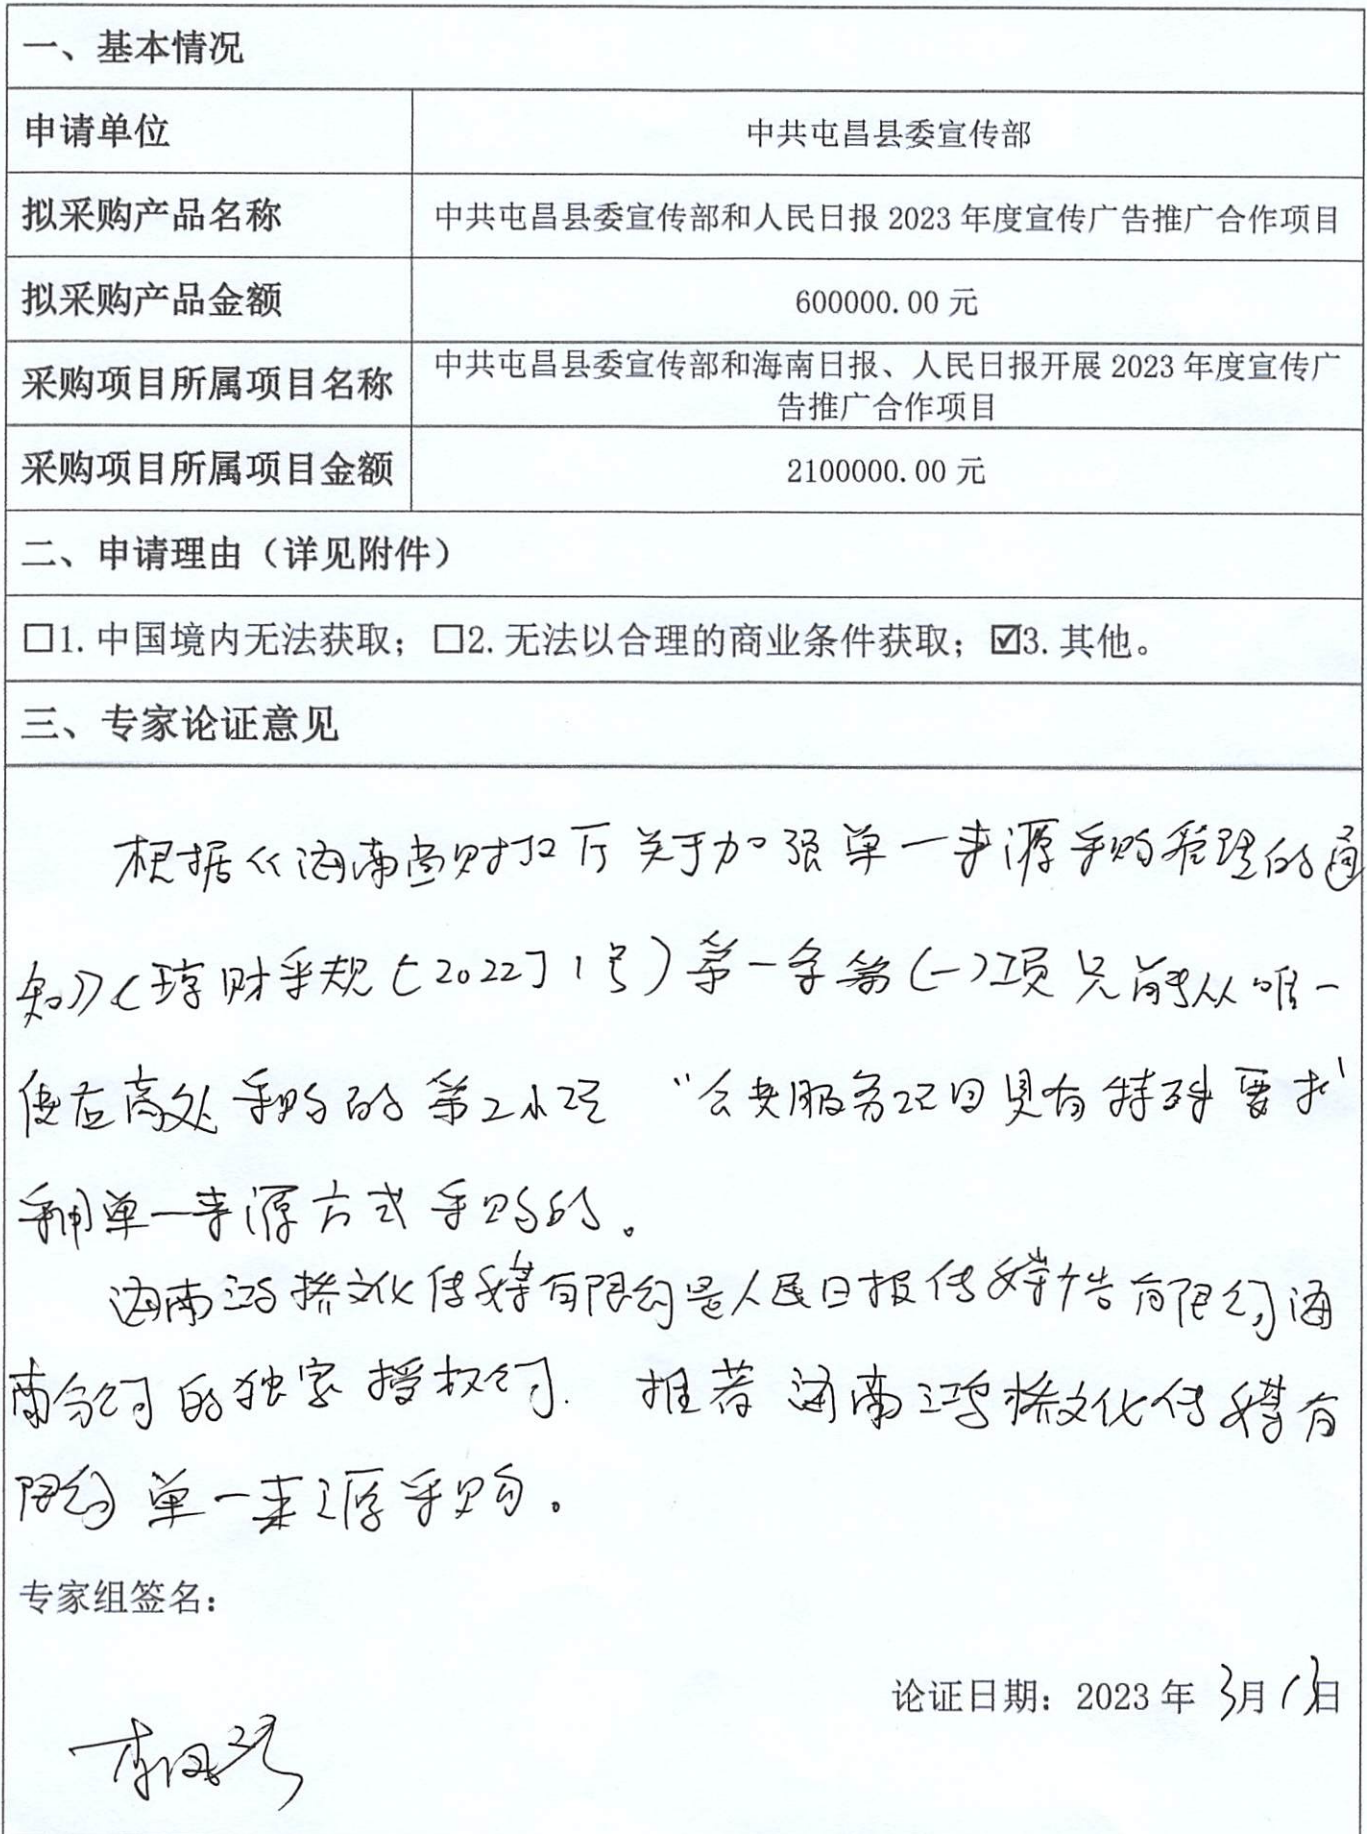 一、基本情况
申请单位
中共屯昌县委宣传部
拟采购产品名称
中共屯昌县委宣传部和人民日报 2023 年度宣传广告推广合作项目
拟采购产品金额
600000.00 元
采购项目所属项目名称
中共屯昌县委宣传部和海南日报、人民日报开展 2023 年度宣传广
告推广合作项目
采购项目所属项目金额
2100000.00 元
二、申请理由（详见附件）
☐1. 中国境内无法获取；☐2. 无法以合理的商业条件获取；☑3. 其他。
三、专家论证意见
根据《海南省财政厅关于加强单一来源采购管理的通
知》（琼财采规〔2022〕1号）第一条第（一）项只能从唯一
供应商处采购的第2小项“公共服务项目具有特殊要求
采用单一来源方式采购的。
海南鸿桥文化传媒有限公司是人民日报传媒广告有限公司海
南分公司的独家授权公司. 推荐海南鸿桥文化传媒有
限公司单一来源采购。
专家组签名：
论证日期：2023 年 3月13日